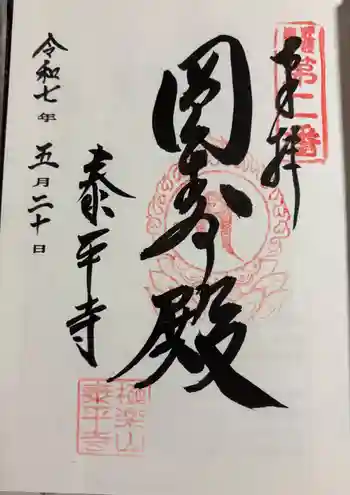 奉拝
第二番
圓寿殿
泰平寺
令和七年五月二十日
極楽山
泰平寺